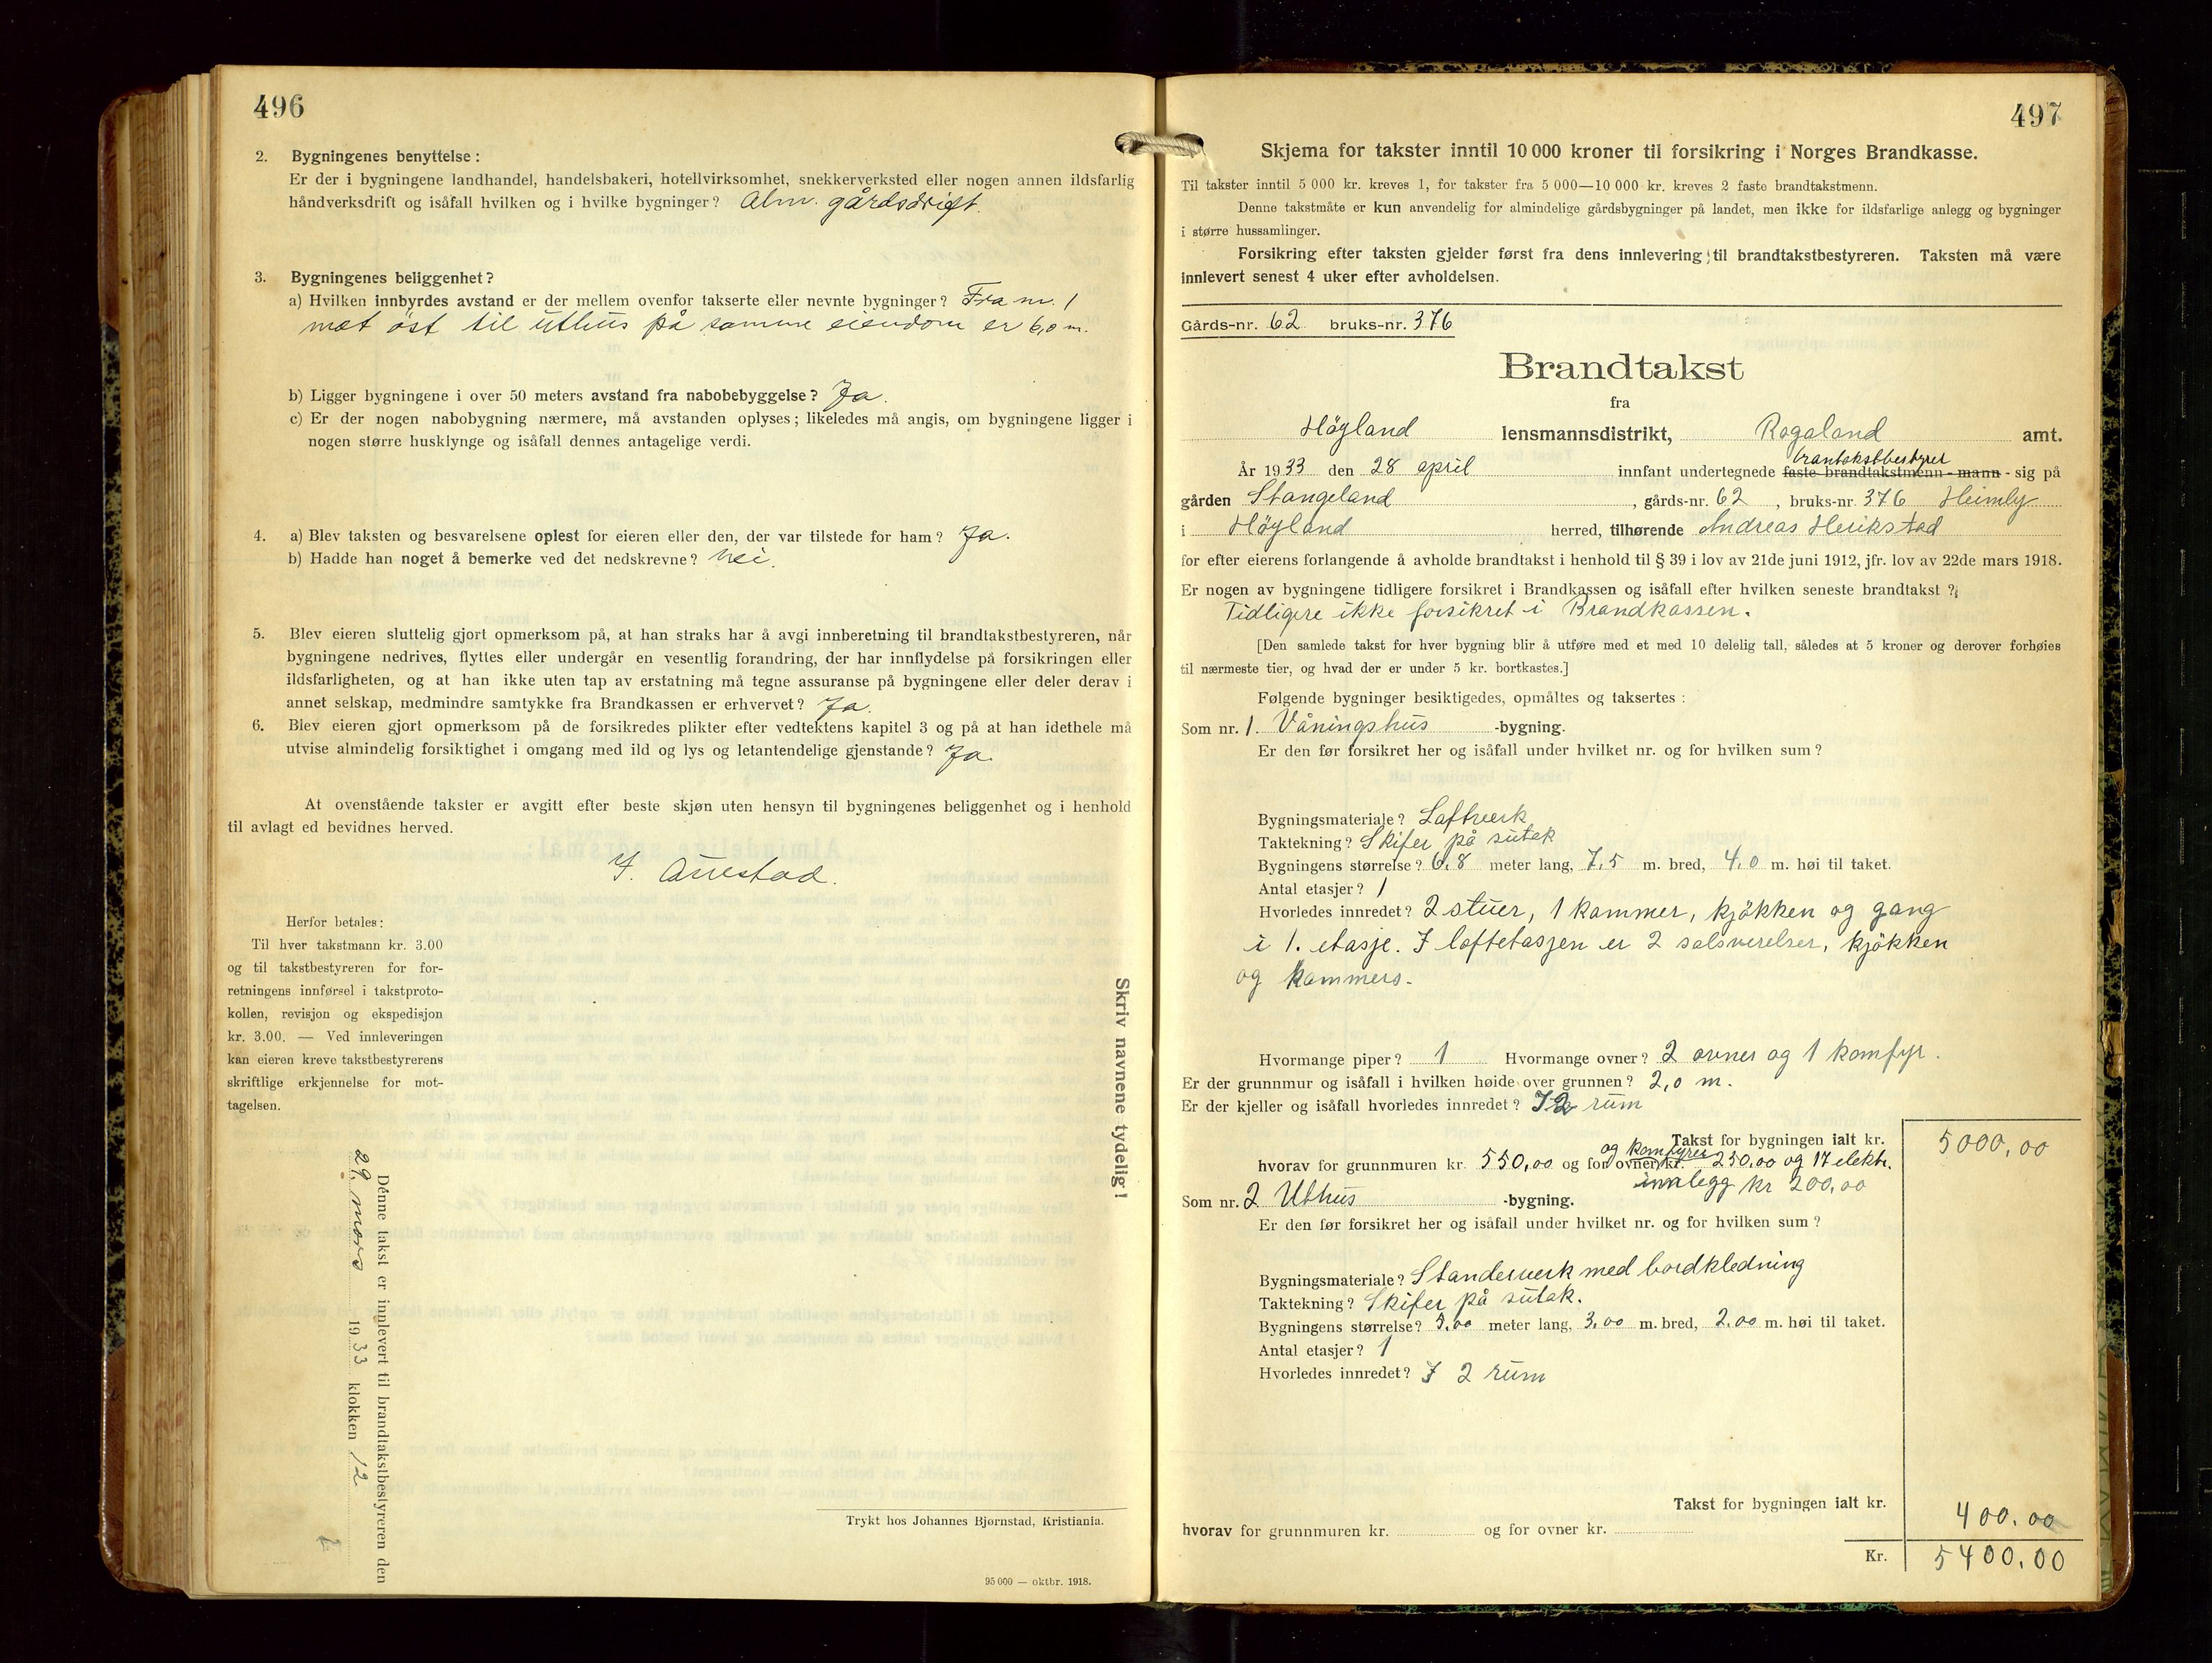 496
2. Bygningenes benyttelse :
Er der i bygningene landhandel, handelsbakeri, hotellvirksomhet, snekkerverksted eller nogen annen ildsfarlig
håndverksdrift og isåfall hvilken og i hvilke bygninger? Alm. gårdsdrift.
3. Bygningenes beliggenhet?
a) Hvilken innbyrdes avstand er der mellem ovenfor takserte eller nevnte bygninger? Fra nr. 1
mot öst til uthus på samme eiendom er 6,0 m.
b) Ligger bygningene i over 50 meters avstand fra nabobebyggelse? Ja.
c) Er der nogen nabobygning nærmere, må avstanden oplyses; likeledes må angis, om bygningene ligger i
nogen større husklynge og isåfall dennes antagelige verdi.
4. a) Blev taksten og besvarelsene oplest for eieren eller den, der var tilstede for ham? Ja.
b) Hadde han noget å bemerke ved det nedskrevne? Nei.
5. Blev eieren sluttelig gjort opmerksom på, at han straks har å avgi innberetning til brandtakstbestyreren, når
bygningene nedrives, flyttes eller undergår en vesentlig forandring, der har innflydelse på forsikringen eller
ildsfarligheten, og at han ikke uten tap av erstatning må tegne assuranse på bygningene eller deler derav i
annet selskap, medmindre samtykke fra Brandkassen er erhvervet? Ja.
6. Blev eieren gjort opmerksom på de forsikredes plikter efter vedtektens kapitel 3 og på at han idethele må
utvise almindelig forsiktighet i omgang med ild og lys og letantendelige gjenstande? Ja.
At ovenstående takster er avgitt efter beste skjøn uten hensyn til bygningenes beliggenhet og i henhold
til avlagt ed bevidnes herved.
J. Auestad.
Herfor betales:
Til hver takstmann kr. 3.00
og til takstbestyreren for for-
retningens innførsel i takstproto-
kollen, revisjon og ekspedisjon
kr. 3.00. — Ved innleveringen
kan eieren kreve takstbestyrerens
skriftlige erkjennelse for mot-
tagelsen.
Skriv navnene tydelig!
Denne takst er innlevert til brandtakstbestyreren den
29 mars 1933 klokken 12
Trykt hos Johannes Bjørnstad, Kristiania.
95 000 — oktbr. 1918.
497
Skjema for takster inntil 10 000 kroner til forsikring i Norges Brandkasse.
Til takster inntil 5 000 kr. kreves 1, for takster fra 5 000—10 000 kr. kreves 2 faste brandtakstmenn.
Denne takstmåte er kun anvendelig for almindelige gårdsbygninger på landet, men ikke for ildsfarlige anlegg og bygninger
i større hussamlinger.
Forsikring efter taksten gjelder først fra dens innlevering til brandtakstbestyreren. Taksten må være
innlevert senest 4 uker efter avholdelsen.
Gårds-nr. 62 bruks-nr. 376
Brandtakst
fra
Höyland lensmannsdistrikt, Rogaland amt.
brantakstbestyrer
År 1933 den 28 april innfant undertegnede faste brandtakstmenn - mann - sig på
gården Stangeland, gårds-nr. 62, bruks-nr. 376 Heimly
i Höyland herred, tilhørende Andreas Herikstad
for efter eierens forlangende å avholde brandtakst i henhold til § 39 i lov av 21de juni 1912, jfr. lov av 22de mars 1918.
Er nogen av bygningene tidligere forsikret i Brandkassen og isåfall efter hvilken seneste brandtakst ?
Tidligere ikke forsikret i Brandkassen.
[Den samlede takst for hver bygning blir å utføre med et med 10 delelig tall, således at 5 kroner og derover forhøies
til nærmeste tier, og hvad der er under 5 kr. bortkastes.]
Følgende bygninger besiktigedes, opmåltes og taksertes :
Som nr. 1. Våningshus -bygning.
Er den før forsikret her og isåfall under hvilket nr. og for hvilken sum?
Bygningsmateriale? Laftverk
Taktekning? Skifer på sutak
Bygningens størrelse? 6,8 meter lang, 7,5 m. bred, 4,0 m. høi til taket.
Antal etasjer? 1
Hvorledes innredet? 2 stuer, 1 kammer, kjökken og gang
i 1. etasje. I loftetasjen er 2 salsverelser, kjökken
og kammers.
Hvormange piper? 1 Hvormange ovner? 2 ovner og 1 komfyr.
Er der grunnmur og isåfall i hvilken høide over grunnen? 2,0 m.
Er der kjeller og isåfall hvorledes innredet? I 2 rum
Takst for bygningen ialt kr. 5000,00
og komfyrer
hvorav for grunnmuren kr. 550,00 og for ovner kr. 250,00 og 17 elektr.
innlegg kr 200,00
Som nr. 2 Uthus -bygning.
Er den før forsikret her og isåfall under hvilket nr. og for hvilken sum?
Bygningsmateriale? Standerverk med bordkledning
Taktekning? Skifer på sutak.
Bygningens størrelse? 5,00 meter lang, 3,00 m. bred, 2,00 m. høi til taket.
Antal etasjer? 1
Hvorledes innredet? I 2 rum
Takst for bygningen ialt kr. 400,00
hvorav for grunnmuren kr. og for ovner kr.
Kr. 5400,00